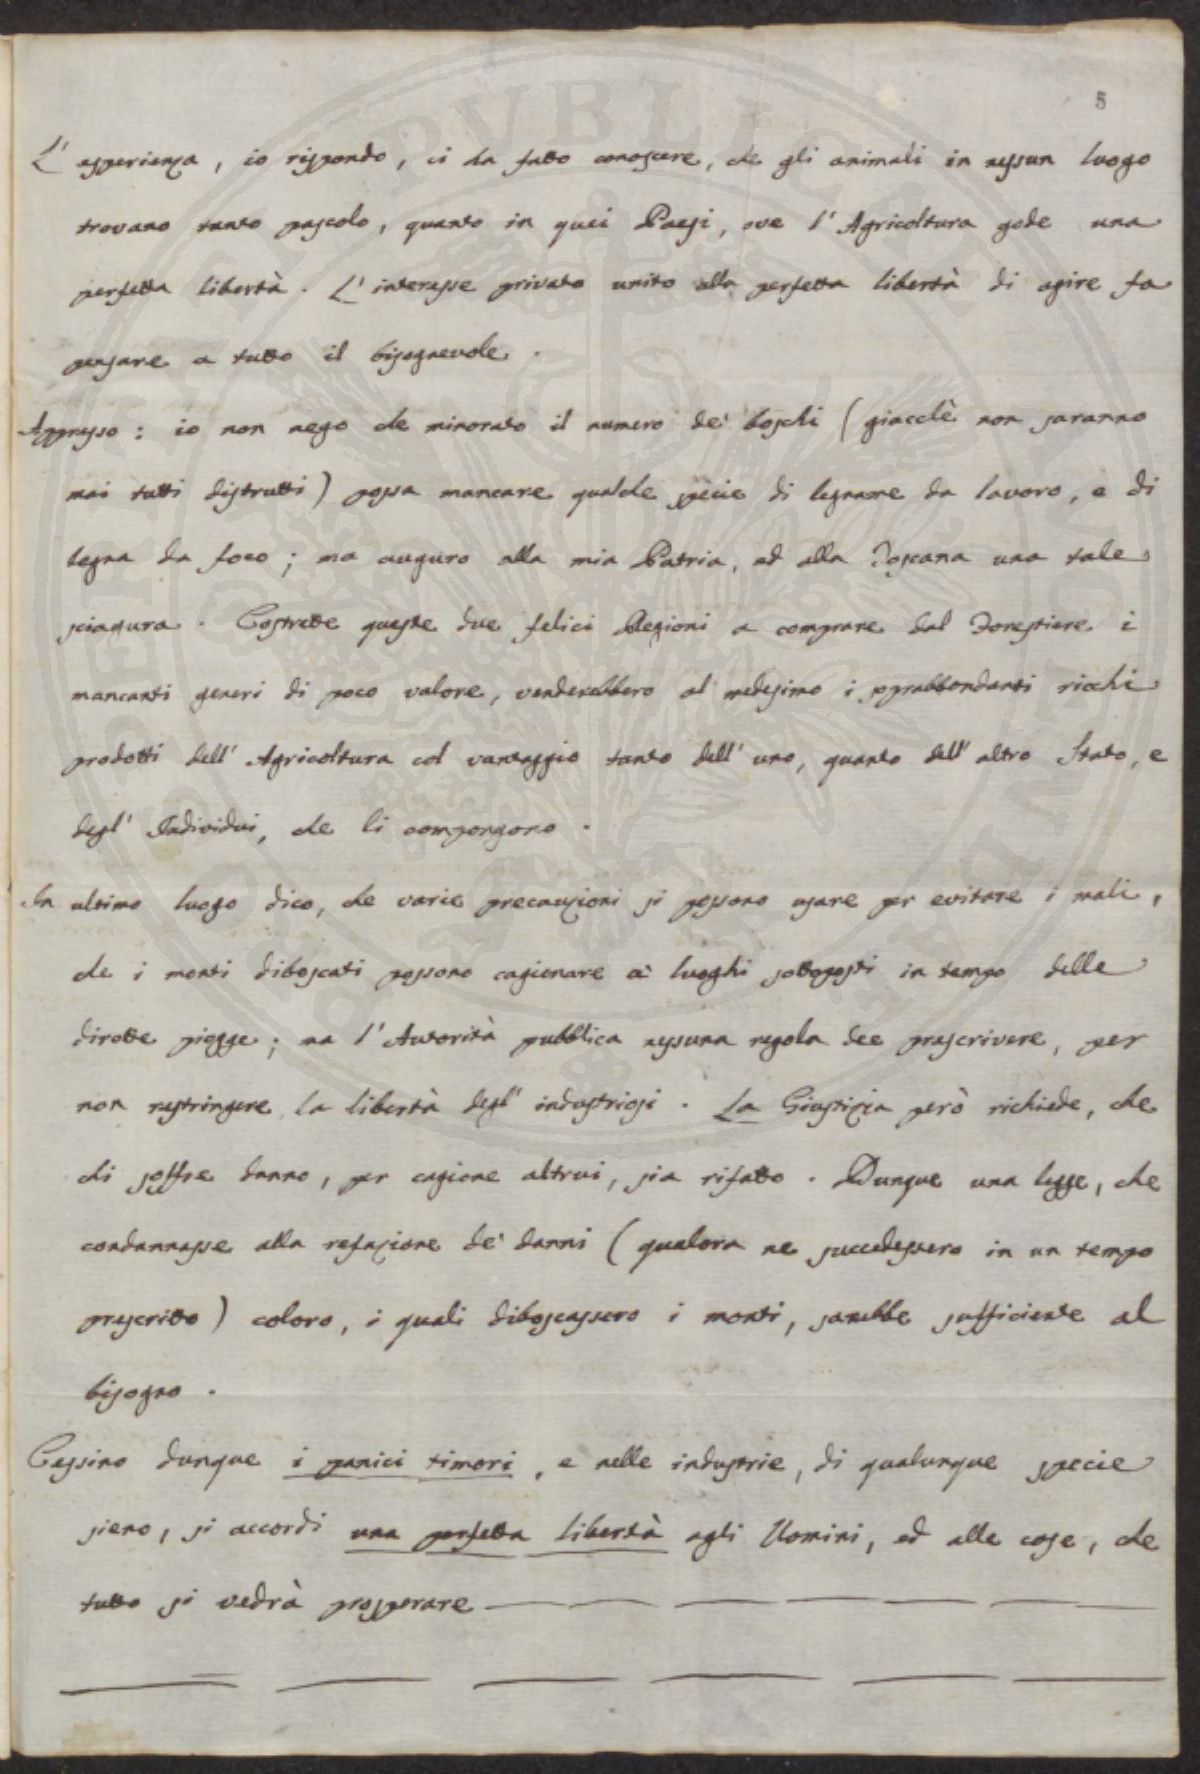 5
L' esperienza, io rispondo, ci ha fatto conoscere, che gli animali in nessun luogo
trovano tanto pascolo, quanto in quei Paesi, ove l' Agricoltura gode una
perfetta libertà. L' interesse privato unito alla perfetta libertà di agire fa
pensare a tutto il bisognevole.
Appresso: io non nego che minorato il numero de' boschi (giacchè non saranno
mai tutti distrutti) possa mancare qualche specie di legname da lavoro, e di
legna da foco; ma auguro alla mia Patria, ed alla Toscana una tale
sciagura. Costrette queste due felici Regioni a comprare dal Forestiere i
mancanti generi di poco valore, venderebbero al medesimo i sprabbondanti ricchi
prodotti dell' Agricoltura col vantaggio tanto dell' uno, quanto dell' altro Stato, e
degl' Individui, che li compongono.
In ultimo luogo dico, che varie precauzioni si possono usare per evitare i mali,
che i monti diboscati possono cagionare a' luoghi sottoposti in tempo delle
dirotte piogge; ma l' Autorità pubblica nessuna regola dee prescrivere, per
non restringere la libertà degl' industriosi. La Giustizia però richiede, che
chi soffre danno, per cagione altrui, sia rifatto. Dunque una legge, che
condannasse alla refazione de' danni (qualora ne succedessero in un tempo
prescritto) coloro, i quali diboscassero i monti, sarebbe sufficiente al
bisogno.
Cessino dunque i panici timori, e nelle industrie, di qualunque specie
sieno, si accordi una perfetta libertà agli Uomini, ed alle cose, che
tutto si vedrà prosperare